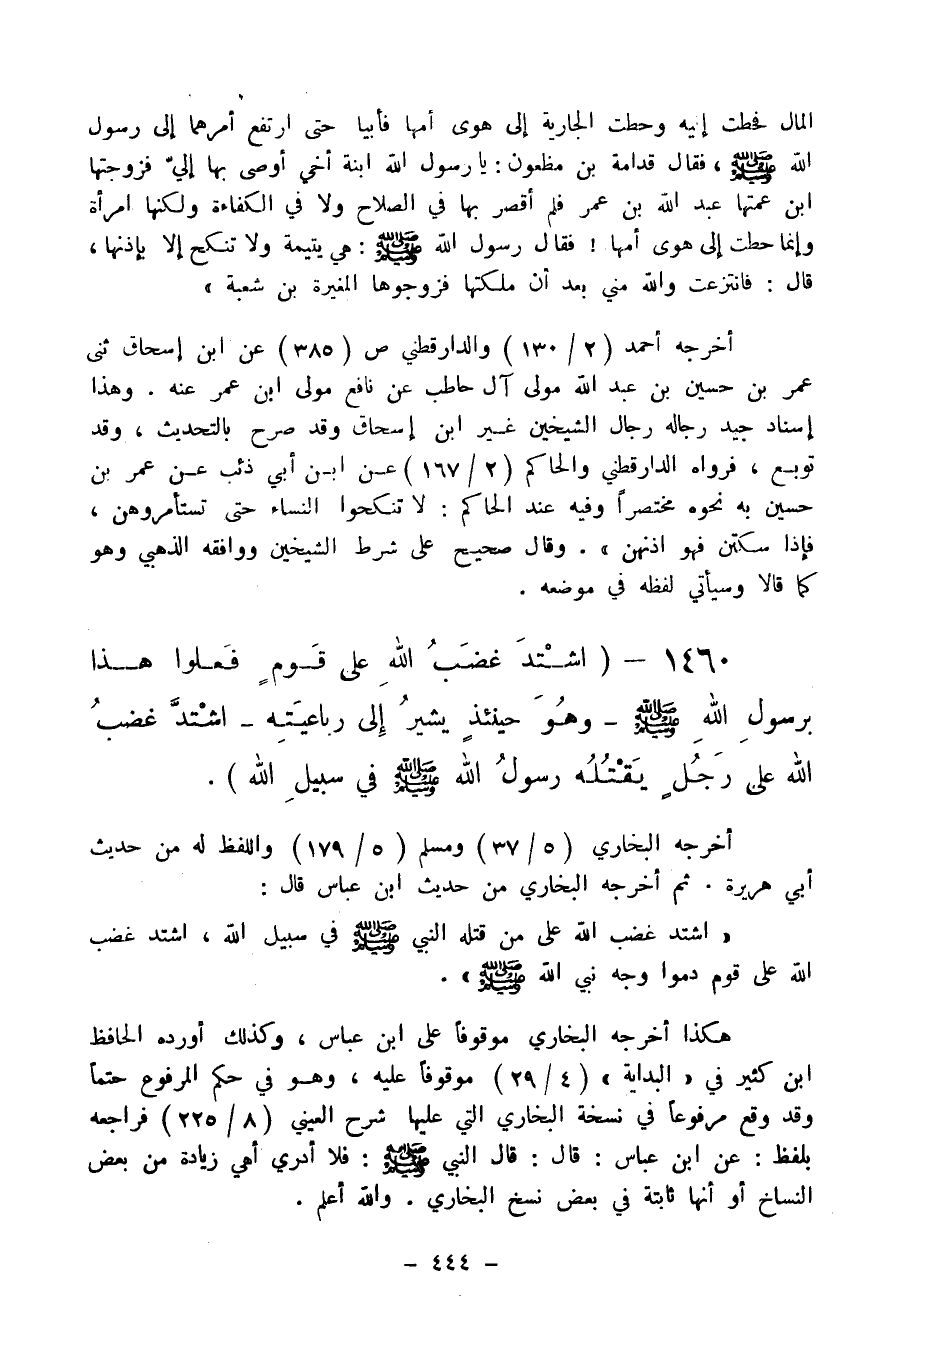 المال فحطت إليه وحطت الجارية إلى هوى أمها فأبيا حتى ارتفع أمرهما إلى رسول
الله ﷺ ، فقال قدامة بن مظعون : يا رسول الله ابنة أخي أوصى بها إليّ فزوجتها
ابن عمتها عبد الله بن عمر فلم أقصر بها في الصلاح ولا في الكفاءة ولكنها امرأة
وإنما حطت إلى هوى أمها ! فقال رسول الله ﷺ : هي يتيمة ولا تنكح إلا بإذنها ،
قال : فانتزعت والله مني بعد أن ملكتها فزوجوها المغيرة بن شعبة »
أخرجه أحمد ( ٢ / ١٣٠ ) والدارقطني ص ( ٣٨٥ ) عن ابن إسحاق ثنى
عمر بن حسين بن عبد الله مولى آل حاطب عن نافع مولى ابن عمر عنه . وهذا
إسناد جيد رجاله رجال الشيخين غير ابن إسحاق وقد صرح بالتحديث ، وقد
توبع ، فرواه الدارقطني والحاكم ( ٢ / ١٦٧ ) عن ابن أبي ذئب عن عمر بن
حسين به نحوه مختصراً وفيه عند الحاكم : لا تنكحوا النساء حتى تستأمروهن ،
فإذا سكتن فهو اذنهن » . وقال صحيح على شرط الشيخين ووافقه الذهبي وهو
كما قالا وسيأتي لفظه في موضعه .
١٤٦٠ – ( اشْتدَ غضَبُ اللهِ على قَومٍ فَعلوا هذا
برسولِ اللهِ ﷺ ـ وهُوَ حينئذٍ يشيرُ إلى رباعيَتهِ ـ اشْتدَّ غضبُ
الله على رَجُلٍ يَقتُلُه رسولُ الله ﷺ في سبيلِ الله ) .
أخرجه البخاري ( ٥ / ٣٧ ) ومسلم ( ٥ / ١٧٩ ) واللفظ له من حديث
أبي هريرة . ثم أخرجه البخاري من حديث ابن عباس قال :
« اشتد غضب الله على من قتله النبي ﷺ في سبيل الله ، اشتد غضب
الله على قوم دموا وجه نبي الله ﷺ » .
هكذا أخرجه البخاري موقوفاً على ابن عباس ، وكذلك أورده الحافظ
ابن كثير في « البداية » ( ٤ / ٢٩ ) موقوفاً عليه ، وهو في حكم المرفوع حتماً
وقد وقع مرفوعاً في نسخة البخاري التي عليها شرح العيني ( ٨ / ٢٢٥ ) فراجعه
بلفظ : عن ابن عباس : قال : قال النبي ﷺ : فلا أدري أهي زيادة من بعض
النساخ أو أنها ثابتة في بعض نسخ البخاري . والله أعلم .
- ٤٤٤ -